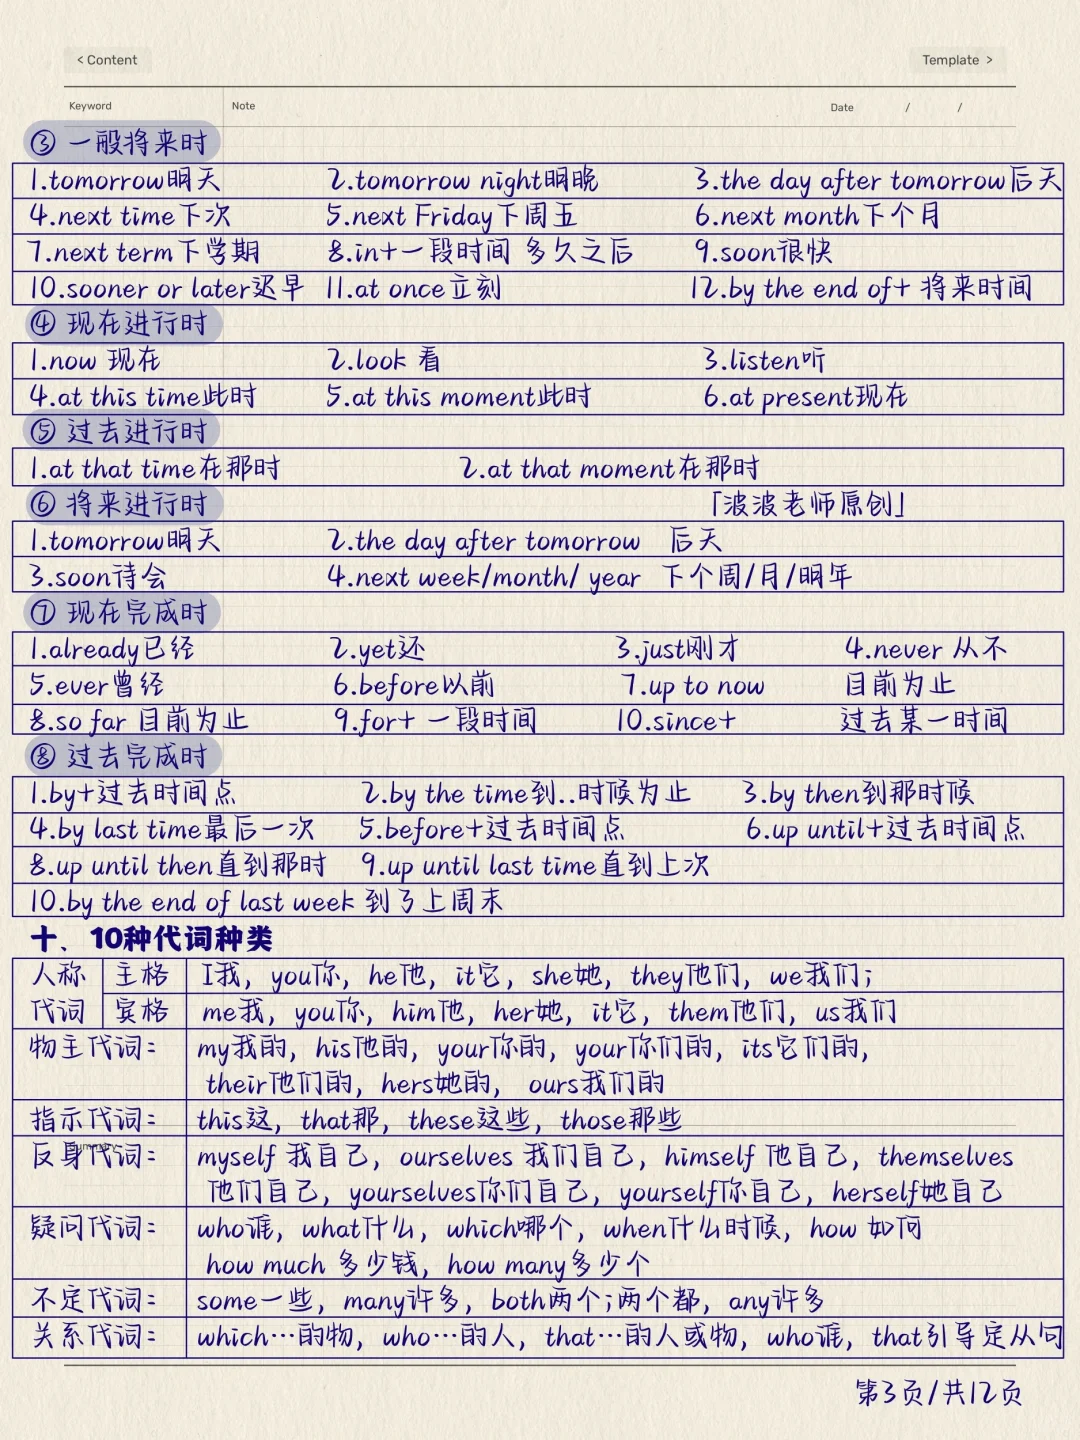 < Content Template >
Keyword Note Date / /
③ 一般将来时
1.tomorrow明天 2.tomorrow night明晚 3.the day after tomorrow后天
4.next time下次 5.next Friday下周五 6.next month下个月
7.next term下学期 8.in+一段时间 多久之后 9.soon很快
10.sooner or later迟早 11.at once立刻 12.by the end of+ 将来时间
④ 现在进行时
1.now 现在 2.look 看 3.listen听
4.at this time此时 5.at this moment此时 6.at present现在
⑤ 过去进行时
1.at that time在那时 2.at that moment在那时
⑥ 将来进行时 「波波老师原创」
1.tomorrow明天 2.the day after tomorrow 后天
3.soon待会 4.next week/month/ year 下个周/月/明年
⑦ 现在完成时
1.already已经 2.yet还 3.just刚才 4.never 从不
5.ever曾经 6.before以前 7.up to now 目前为止
8.so far 目前为止 9.for+ 一段时间 10.since+ 过去某一时间
⑧ 过去完成时
1.by+过去时间点 2.by the time到..时候为止 3.by then到那时候
4.by last time最后一次 5.before+过去时间点 6.up until+过去时间点
8.up until then直到那时 9.up until last time直到上次
10.by the end of last week 到了上周末
十、10种代词种类
人称 主格 I我, you你, he他, it它, she她, they他们, we我们;
代词 宾格 me我, you你, him他, her她, it它, them他们, us我们
物主代词: my我的, his他的, your你的, your你们的, its它们的,
their他们的, hers她的, ours我们的
指示代词: this这, that那, these这些, those那些
Summary
反身代词: myself 我自己, ourselves 我们自己, himself 他自己, themselves
他们自己, yourselves你们自己, yourself你自己, herself她自己
疑问代词: who谁, what什么, which哪个, when什么时候, how 如何
how much 多少钱, how many多少个
不定代词: some一些, many许多, both两个;两个都, any许多
关系代词: which…的物, who…的人, that…的人或物, who谁, that引导定从句
第3页/共12页